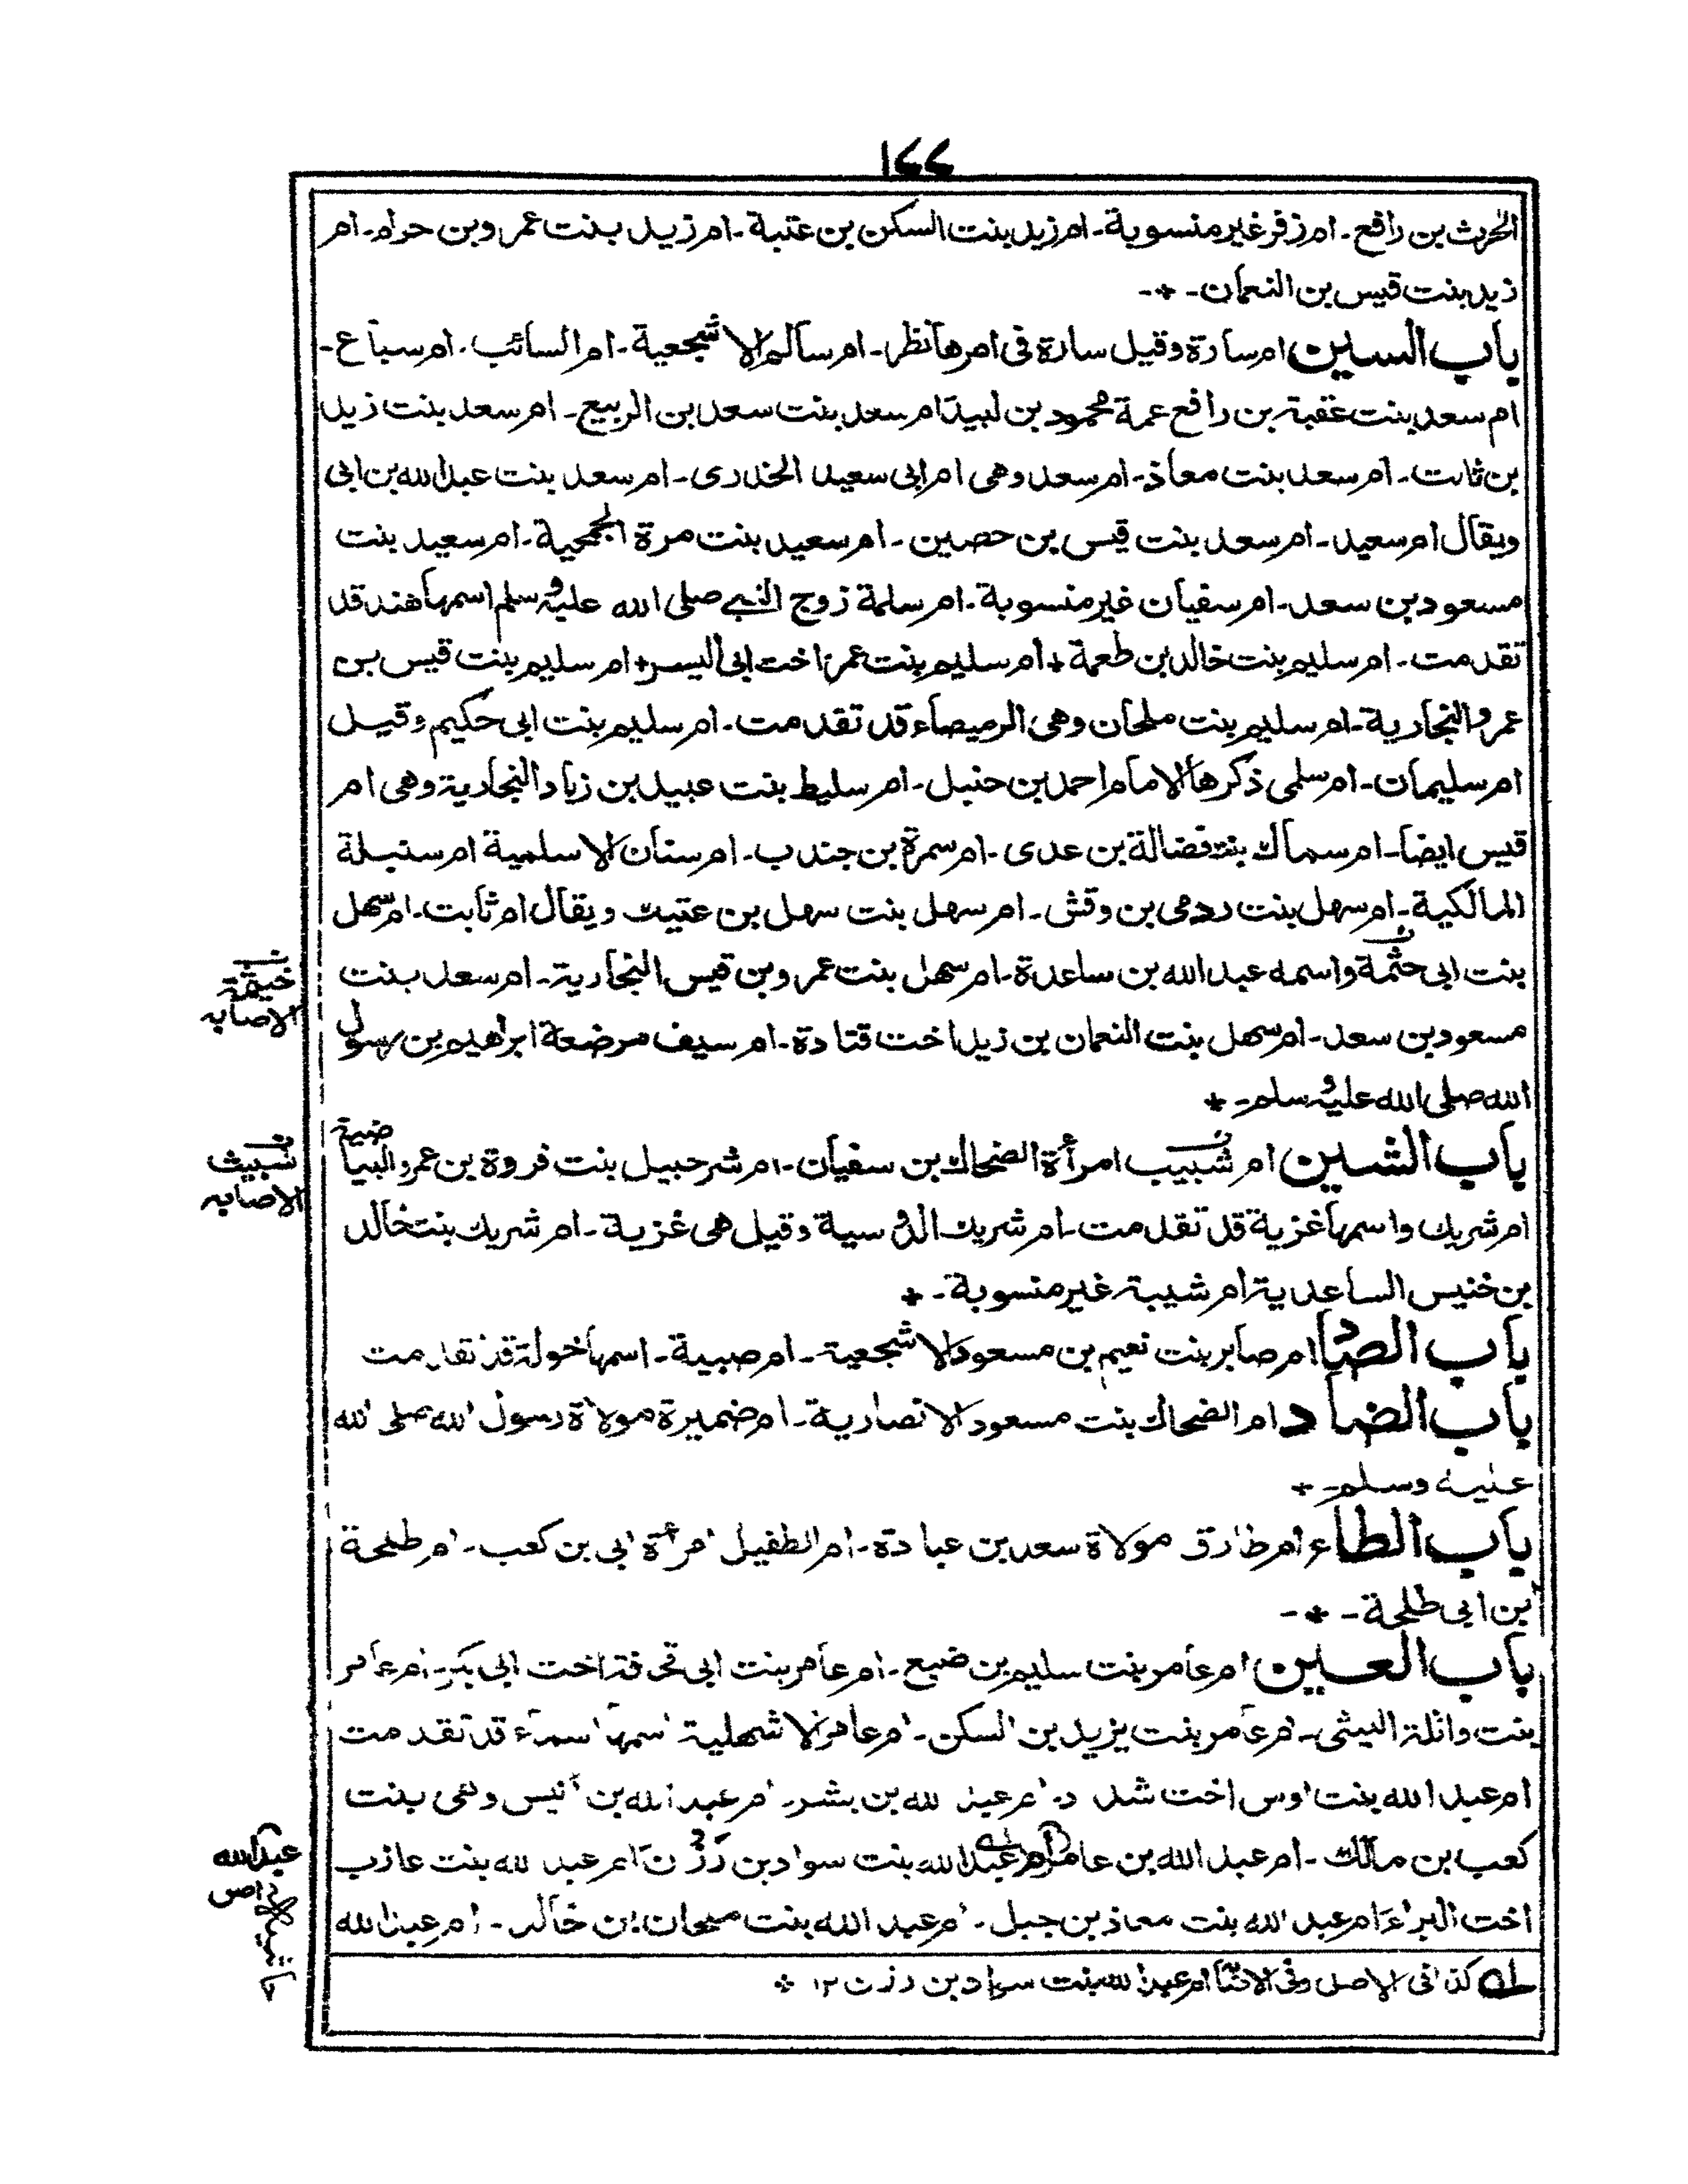 ١٢٢
الحرث بن رافع - ام زفر غير منسوبة - ام زيد بنت السكن بن عتبة - ام زيد بنت عمرو بن حرام - ام
زيد بنت قيس بن النعمان - * -
باب السين ام سارة وقيل سارة فى امرها نظر - ام سالم الاشجعية - ام السائب - ام سباع -
ام سعد بنت عقبة بن رافع عمة محمود بن لبيد ام سعد بنت سعد بن الربيع - ام سعد بنت زيد
بن ثابت - ام سعد بنت معاذ - ام سعد وهى ام ابى سعيد الخدرى - ام سعد بنت عبد الله بن ابى
ويقال ام سعيد - ام سعد بنت قيس بن حصين - ام سعيد بنت مرة الجمحية - ام سعيد بنت
مسعود بن سعد - ام سفيان غير منسوبة - ام سلمة زوج النبى صلى الله عليه وسلم اسمها هند قد
تقدمت - ام سليم بنت خالد بن طعمة * ام سليم بنت عمرو اخت ابى اليسر * ام سليم بنت قيس بن
عمرو النجارية - ام سليم بنت ملحان وهى الرميصاء قد تقدمت - ام سليم بنت ابى حكيم وقيل
ام سليمان - ام سلمى ذكرها الامام احمد بن حنبل - ام سليط بنت عبيد بن زياد النجارية وهى ام
قيس ايضا - ام سماك بنت فضالة بن عدى - ام سمرة بن جندب - ام سنان الاسلمية ام سنبلة
المالكية - ام سهل بنت رومى بن وقش - ام سهل بنت سهل بن عتيك ويقال ام ثابت - ام سهل
بنت ابى حثمة واسمه عبد الله بن ساعدة - ام سهل بنت عمرو بن قيس النجارية - ام سعد بنت
خيثمة
الاصابه
مسعود بن سعد - ام سهل بنت النعمان بن زيد اخت قتادة - ام سيف مرضعة ابراهيم بن رسول
الله صلى الله عليه وسلم - *
باب الشين ام شبيب امرأة الضحاك بن سفيان - ام شرحبيل بنت فروة بن عمرو البياضية
شبيث
الاصابه
ام شريك واسمها غزية قد تقدمت - ام شريك الدوسية وقيل هى غزية - ام شريك بنت خالد
بن خنيس الساعدية ام شيبة غير منسوبة - *
باب الصاد ام صابر بنت نعيم بن مسعود الاشجعية - ام صبية - اسمها خولة قد تقدمت
باب الضاد ام الضحاك بنت مسعود الانصارية - ام ضميرة مولاة رسول الله صلى الله
عليه وسلم - *
باب الطاء ام طارق مولاة سعد بن عبادة - ام الطفيل امرأة ابى بن كعب - ام طلحة
بن ابى طلحة - * -
باب العين ام عامر بنت سليم بن ضبع - ام عامر بنت ابى قحافة اخت ابى بكر - ام عامر
بنت واثلة الليثى - ام عامر بنت يزيد بن السكن - ام عامر الاشهلية اسمها اسماء قد تقدمت
ام عبد الله بنت اوس اخت شداد - ام عبد الله بن بشر - ام عبد الله بن انيس وهى بنت
كعب بن مالك - ام عبد الله بن عامر ام عبد الله بنت سواد بن رزن ام عبد الله بنت عازب
عبد الله
اخت البراء ام عبد الله بنت معاذ بن جبل - ام عبد الله بنت ملحان بن خالد - ام عبد الله
كذا فى الاصل وفى الاصابة ام عبد الله بنت سواد بن رزن ١٢ *